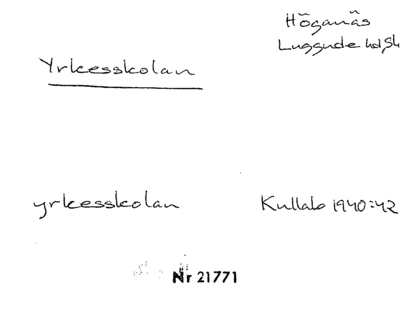 Höganäs
Luggude hd, Sk
Yrkesskolan
yrkesskolan
Kullab 1940:42
Nr 21771